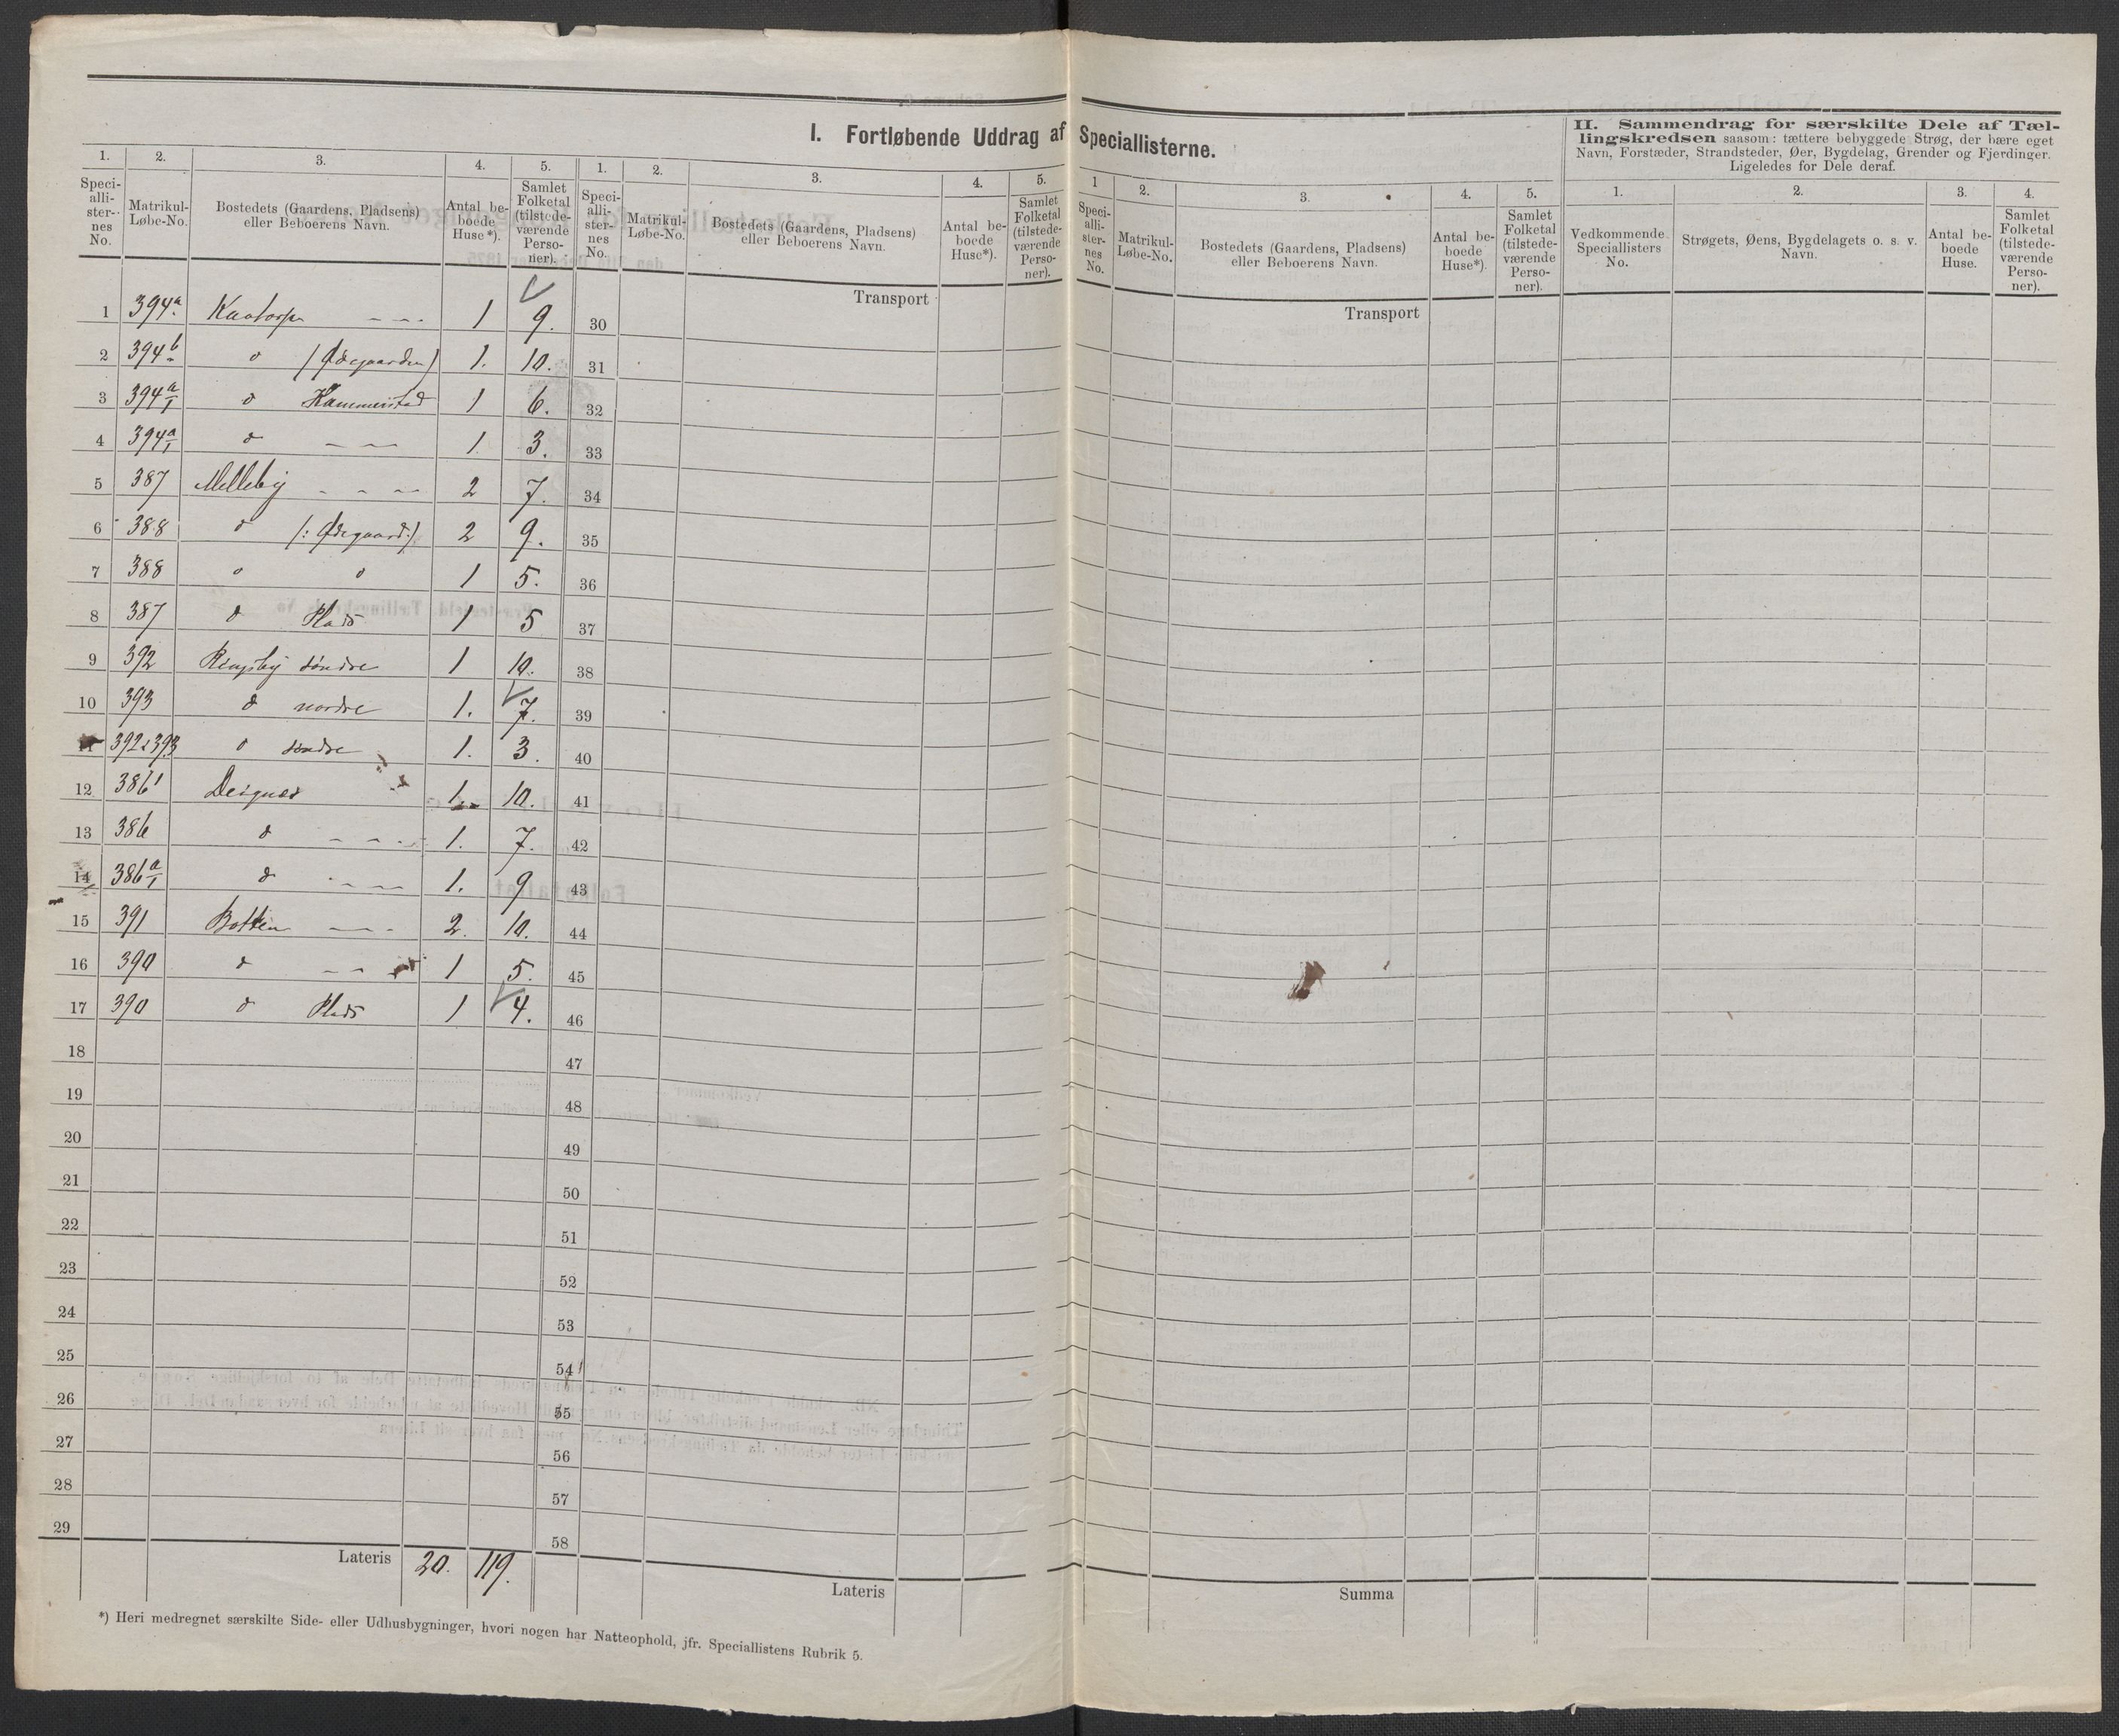 I. Fortløbende Uddrag af Speciallisterne.
1. 2. 3. 4. 5.
Speciallisternes No. Matrikul-Løbe-No. Bostedets (Gaardens, Pladsens) eller Beboerens Navn. Antal beboede Huse*). Samlet Folketal (tilstedeværende Personer).
1 394a. Kaatorp - - - 1 9.
2 394b d (Ødegaarden) 1. 10.
3 394a/1 d Hammerstad 1 6.
4 394a/1 d - - - 1 3.
5 387 Melleby - - - 2 7.
6 388 d (: Ødegaard:) 2 9.
7 388 d d 1 5.
8 387 d Plads 1 5
9 392 Ringsby søndre 1 10.
10 393 d nordre 1. 7.
11 392 & 393 d søndre 1. 3.
12 386 1 Deignes 1. 10.
13 386 d - - - 1. 7.
14 386a/1 d - - - 1. 9
15 391 Botten - - - 2. 10.
16 390 d - - - 1 5.
17 390 d Plads 1 4.
18
19
20
21
22
23
24
25
26
27
28
29
Lateris 20. 119.
*) Heri medregnet særskilte Side- eller Udhusbygninger, hvori nogen har Natteophold, jfr. Speciallistens Rubrik 5.
1. 2. 3. 4. 5.
Speciallisternes No. Matrikul-Løbe-No. Bostedets (Gaardens, Pladsens) eller Beboerens Navn. Antal beboede Huse*). Samlet Folketal (tilstedeværende Personer).
Transport
30
31
32
33
34
35
36
37
38
39
40
41
42
43
44
45
46
47
48
49
50
51
52
53
54
55
56
57
58
Lateris
1 2. 3. 4. 5.
Speciallisternes No. Matrikul-Løbe-No. Bostedets (Gaardens, Pladsens) eller Beboerens Navn. Antal beboede Huse*). Samlet Folketal (tilstedeværende Personer).
Transport
Summa
II. Sammendrag for særskilte Dele af Tællingskredsen saasom: tættere bebyggede Strøg, der bære eget
Navn, Forstæder, Strandsteder, Øer, Bygdelag, Grender og Fjerdinger.
Ligeledes for Dele deraf.
1. 2. 3. 4.
Vedkommende Speciallisters No. Strøgets, Øens, Bygdelagets o. s. v. Navn. Antal beboede Huse. Samlet Folketal (tilstedeværende Personer).